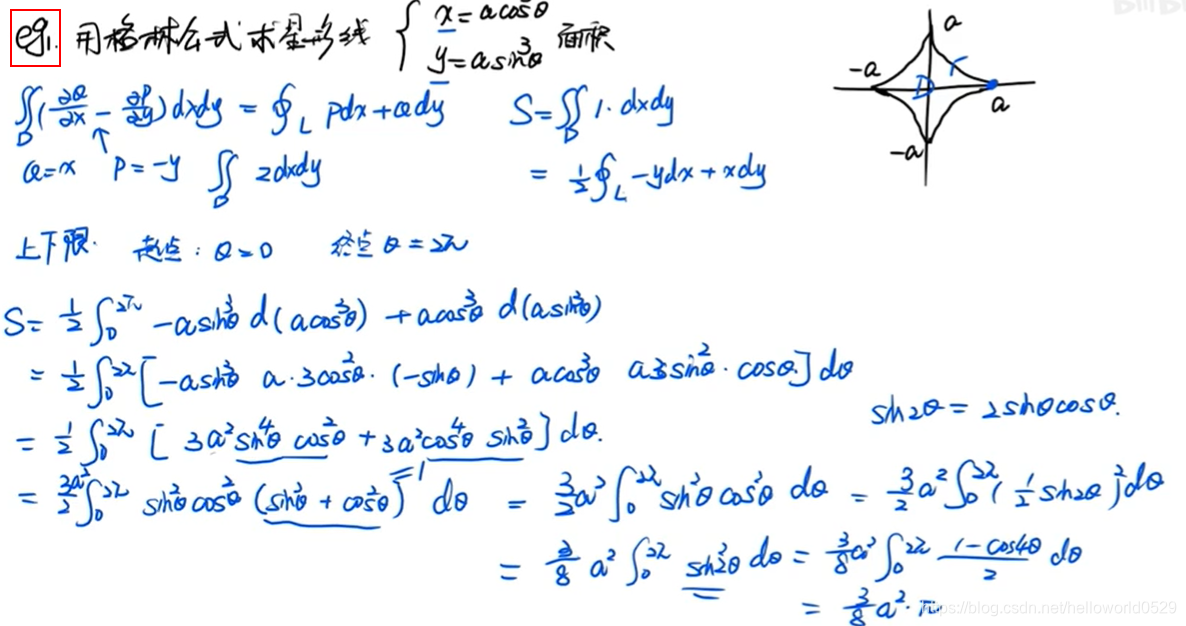 eg1. 用格林公式求星形线 { x=acos³θ y=asin³θ 面积
∬_D(∂Q/∂x - ∂P/∂y)dxdy = ∮_L Pdx+Qdy
S=∬_D 1·dxdy
Q=x P=-y ∬_D 2dxdy
= 1/2 ∮_L -ydx+xdy
a
-a
D
r
a
-a
上下限. 起点: θ=0 终点 θ=2π
S= 1/2 ∫_0^2π -asin³θ d(acos³θ) +acos³θ d(asin³θ)
= 1/2 ∫_0^2π [-asin³θ a·3cos²θ·(-sinθ) + acos³θ a3sin²θ·cosθ]dθ
sin2θ = 2sinθcosθ.
= 1/2 ∫_0^2π [ 3a²sin⁴θ cos²θ +3a²cos⁴θ sin²θ]dθ.
= 3a²/2 ∫_0^2π sin²θcos²θ (sin²θ + cos²θ) =1 dθ = 3/2 a² ∫_0^2π sin²θcos²θ dθ = 3/2 a² ∫_0^2π (1/2 sin2θ)² dθ
= 3/8 a² ∫_0^2π sin²2θ dθ = 3/8 a² ∫_0^2π (1-cos4θ)/2 dθ
= 3/8 a² π
https://blog.csdn.net/helloworld0529